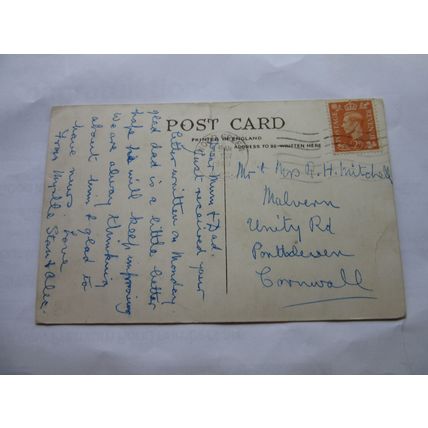 POST CARD
PRINTED IN ENGLAND
ADDRESS TO BE WRITTEN HERE
Dear Mum & Dad.
Just received your
letter written on Monday.
glad dad is a little better
hope he will keep improving
We are always thinking
about him & glad to
have news. Love
from Myrtle Stan & Alec.
Mr & Mrs G. H. Mitchell
Malvern
Unity Rd
Porthleven
Cornwall